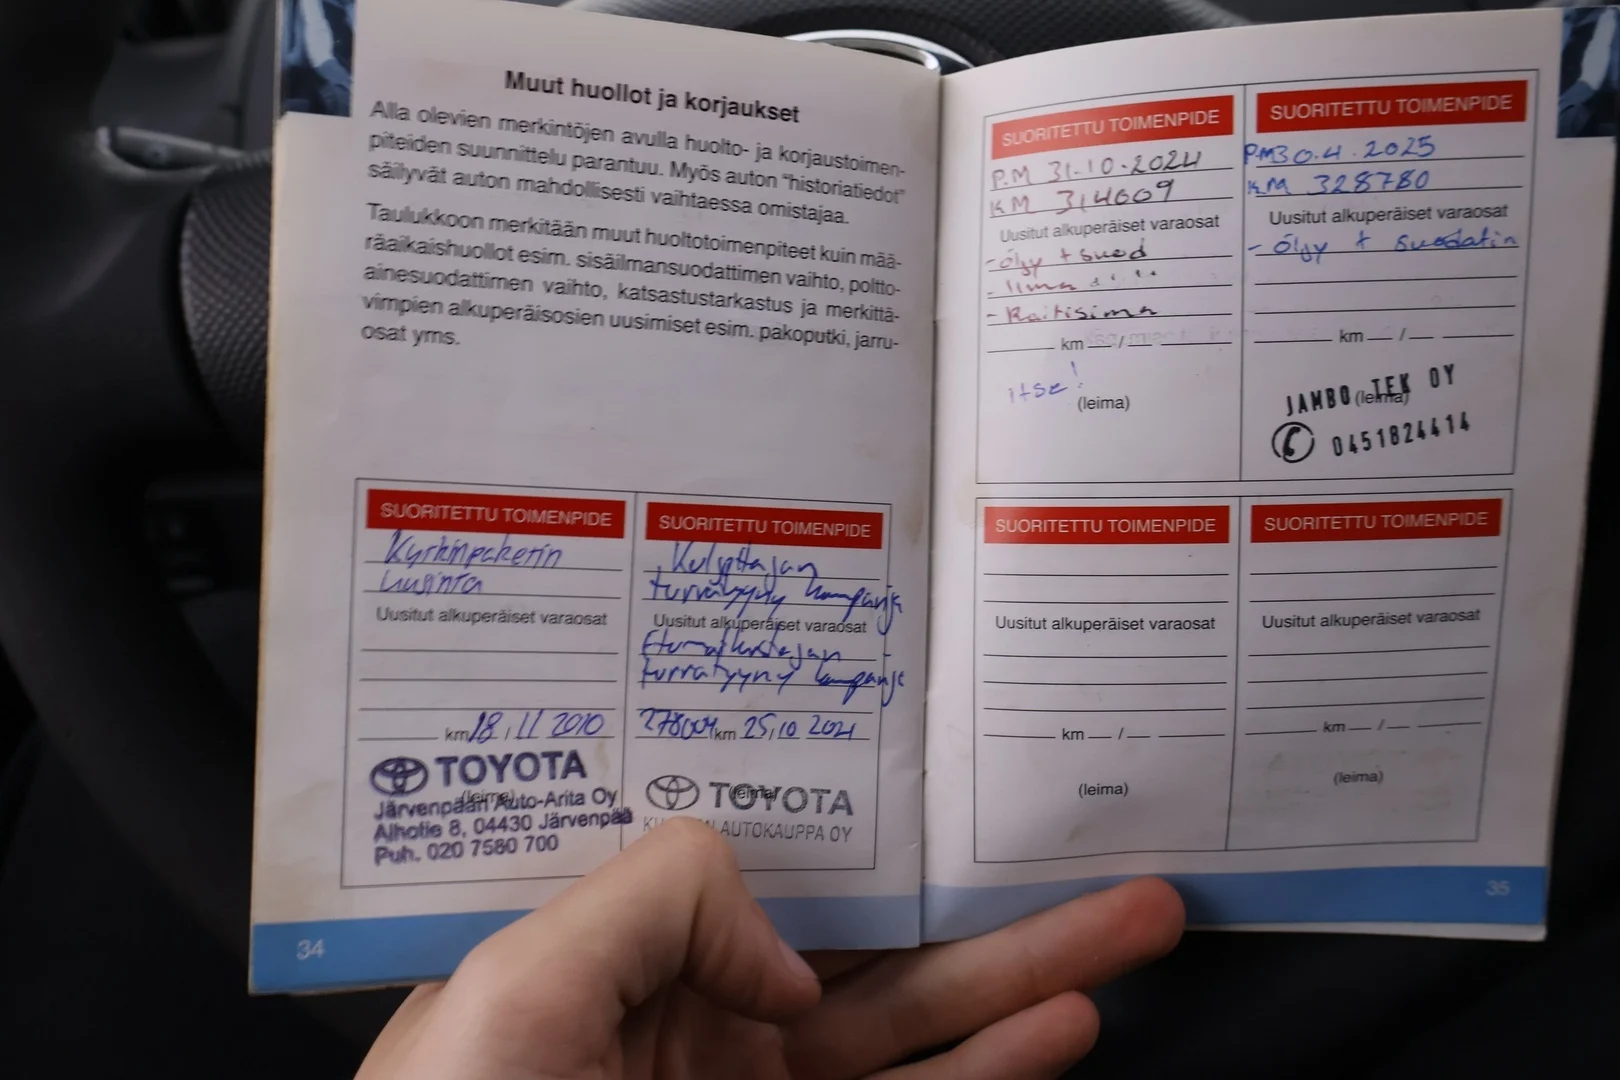 Muut huollot ja korjaukset
Alla olevien merkintöjen avulla huolto- ja korjaustoimen-
piteiden suunnittelu parantuu. Myös auton "historiatiedot"
säilyvät auton mahdollisesti vaihtaessa omistajaa.
Taulukkoon merkitään muut huoltotoimenpiteet kuin mää-
räaikaishuollot esim. sisäilmansuodattimen vaihto, poltto-
ainesuodattimen vaihto, katsastustarkastus ja merkittä-
vimpien alkuperäisosien uusimiset esim. pakoputki, jarru-
osat yms.
SUORITETTU TOIMENPIDE
uusinta
Uusitut alkuperäiset varaosat
km 18, 11 2010
(leima)
TOYOTA
Järvenpään Auto-Arita Oy
Alhotie 8, 04430 Järvenpää
Puh. 020 7580 700
SUORITETTU TOIMENPIDE
Kuljettajan
turvatyyny kampanja
Uusitut alkuperäiset varaosat
Etumatkustajan
turvatyyny kampanja
278004 km 25,10 2021
(leima)
TOYOTA
AUTOKAUPPA OY
34
SUORITETTU TOIMENPIDE
P.M 31.10.2024
KM 314609
Uusitut alkuperäiset varaosat
- öljy + suod
- ilma
- Raitisima
km / 
itse!
(leima)
SUORITETTU TOIMENPIDE
PM 30.4.2025
KM 328780
Uusitut alkuperäiset varaosat
- öljy + suodatin
km / 
(leima)
JAMBO TEK OY
0451824414
SUORITETTU TOIMENPIDE
Uusitut alkuperäiset varaosat
km / 
(leima)
SUORITETTU TOIMENPIDE
Uusitut alkuperäiset varaosat
km / 
(leima)
35